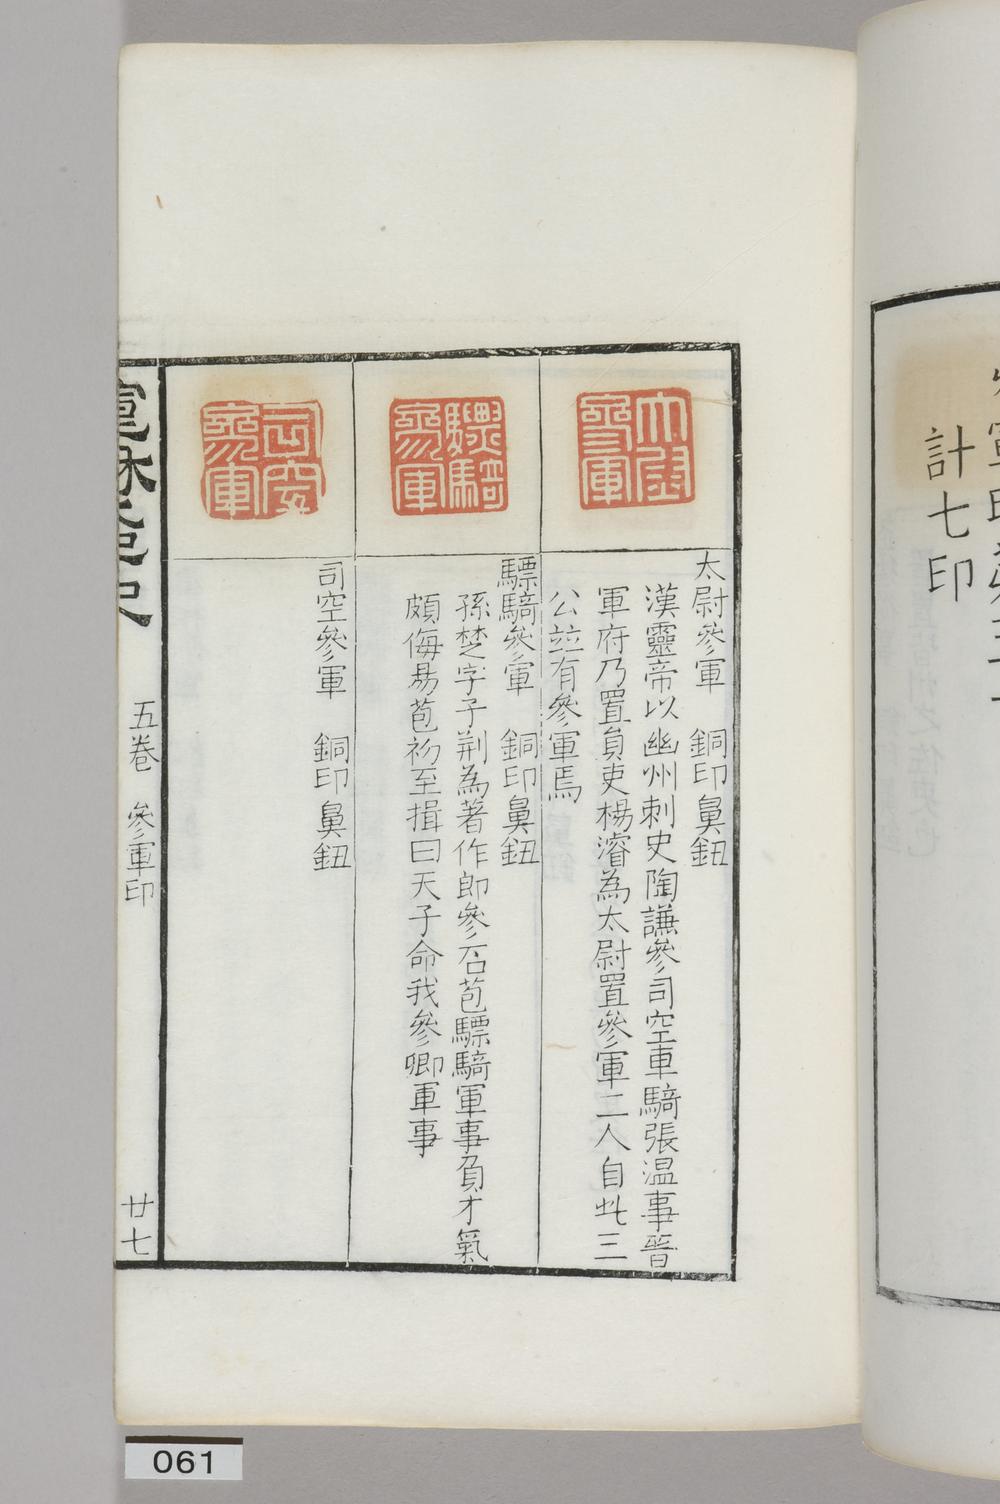 計七印
太尉參軍
太尉參軍 銅印鼻鈕
漢靈帝以幽州刺史陶謙參司空車騎張温事晉
軍府乃置員吏楊濬為太尉置參軍二人自此三
公竝有參軍焉
驃騎參軍
驃騎參軍 銅印鼻鈕
孫楚字子荆為著作郎參石苞驃騎軍事負才氣
頗侮易苞初至揖曰天子命我參卿軍事
司空參軍
司空參軍 銅印鼻鈕
五卷 參軍印 廿七
061